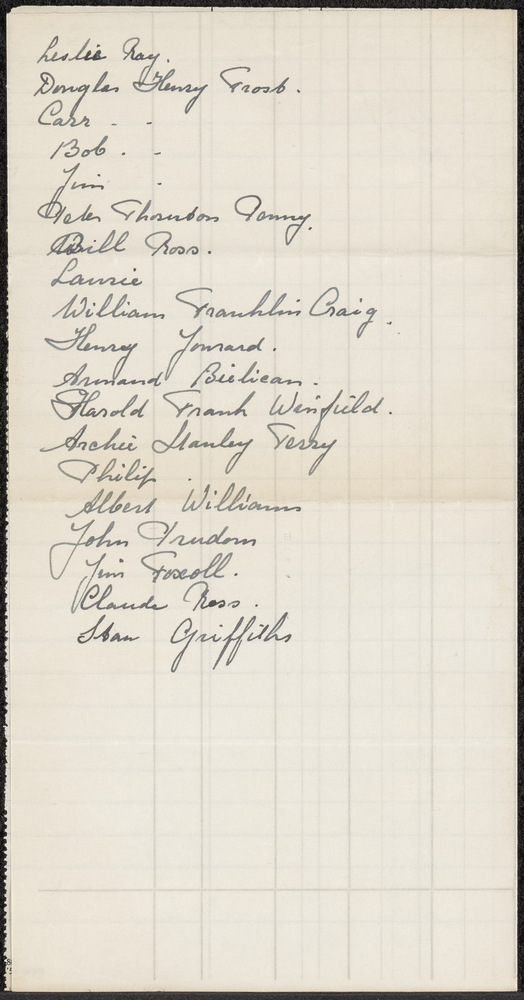 Leslie Ray.
Douglas Henry Frost.
Carr - -
Bob. -
Jim -
Peter Thornton Penny.
Bill Ross.
Laurie
William Franklin Craig.
Henry
Armand Bielican.
Harold Frank Winfield.
Archie Stanley Terry
Philip.
Albert Williams
John Prudom
Jim Foxcoll.
Claude Ross.
Stan Griffiths